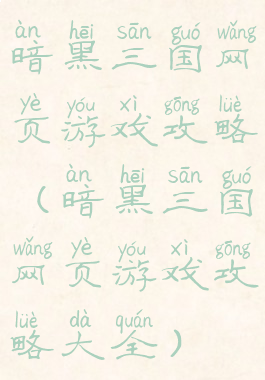 àn hēi sān guó wǎng
暗黑三国网
yè yóu xì gōng lüè
页游戏攻略
àn hēi sān guó
（暗黑三国
wǎng yè yóu xì gōng
网页游戏攻
lüè dà quán
略大全）